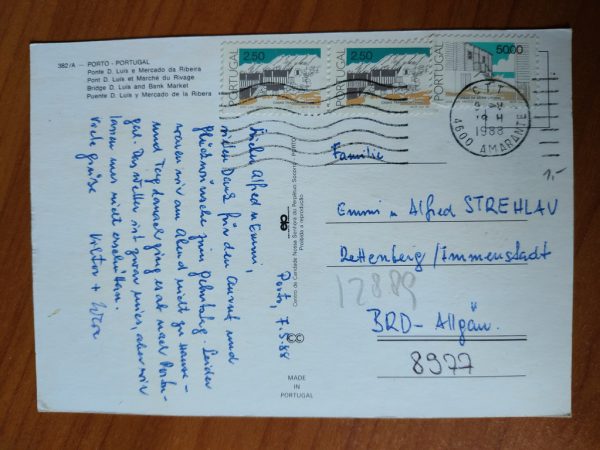 382/A — PORTO - PORTUGAL
Ponte D. Luís e Mercado da Ribeira
Pont D. Luís et Marché du Rivage
Bridge D. Luís and Bank Market
Puente D. Luís y Mercado de la Ribera
PORTUGAL 2.50
PORTUGAL 2.50
PORTUGAL 50.00
CTT
1988
4600 AMARANTE
1,-
Porto, 7.5.88
Liebe Alfred u Emmi,
vielen Dank für den Anruf und
Glückwünsche zum Geburtstag. Leider
waren wir am Abend nicht zu Hause -
und Tag danach ging es ab nach Portu-
gal. Das Wetter ist zwar mies, aber wir
lassen uns nicht erschüttern.
Viele Grüße Viktor +
Centro de Caridade Nossa Senhora do Perpétuo Socorro - Porto
Proibida a reprodução
MADE
IN
PORTUGAL
Familie
Emmi u Alfred STREHLAU
Rettenberg/Immenstadt
12889
BRD - Allgäu
8977